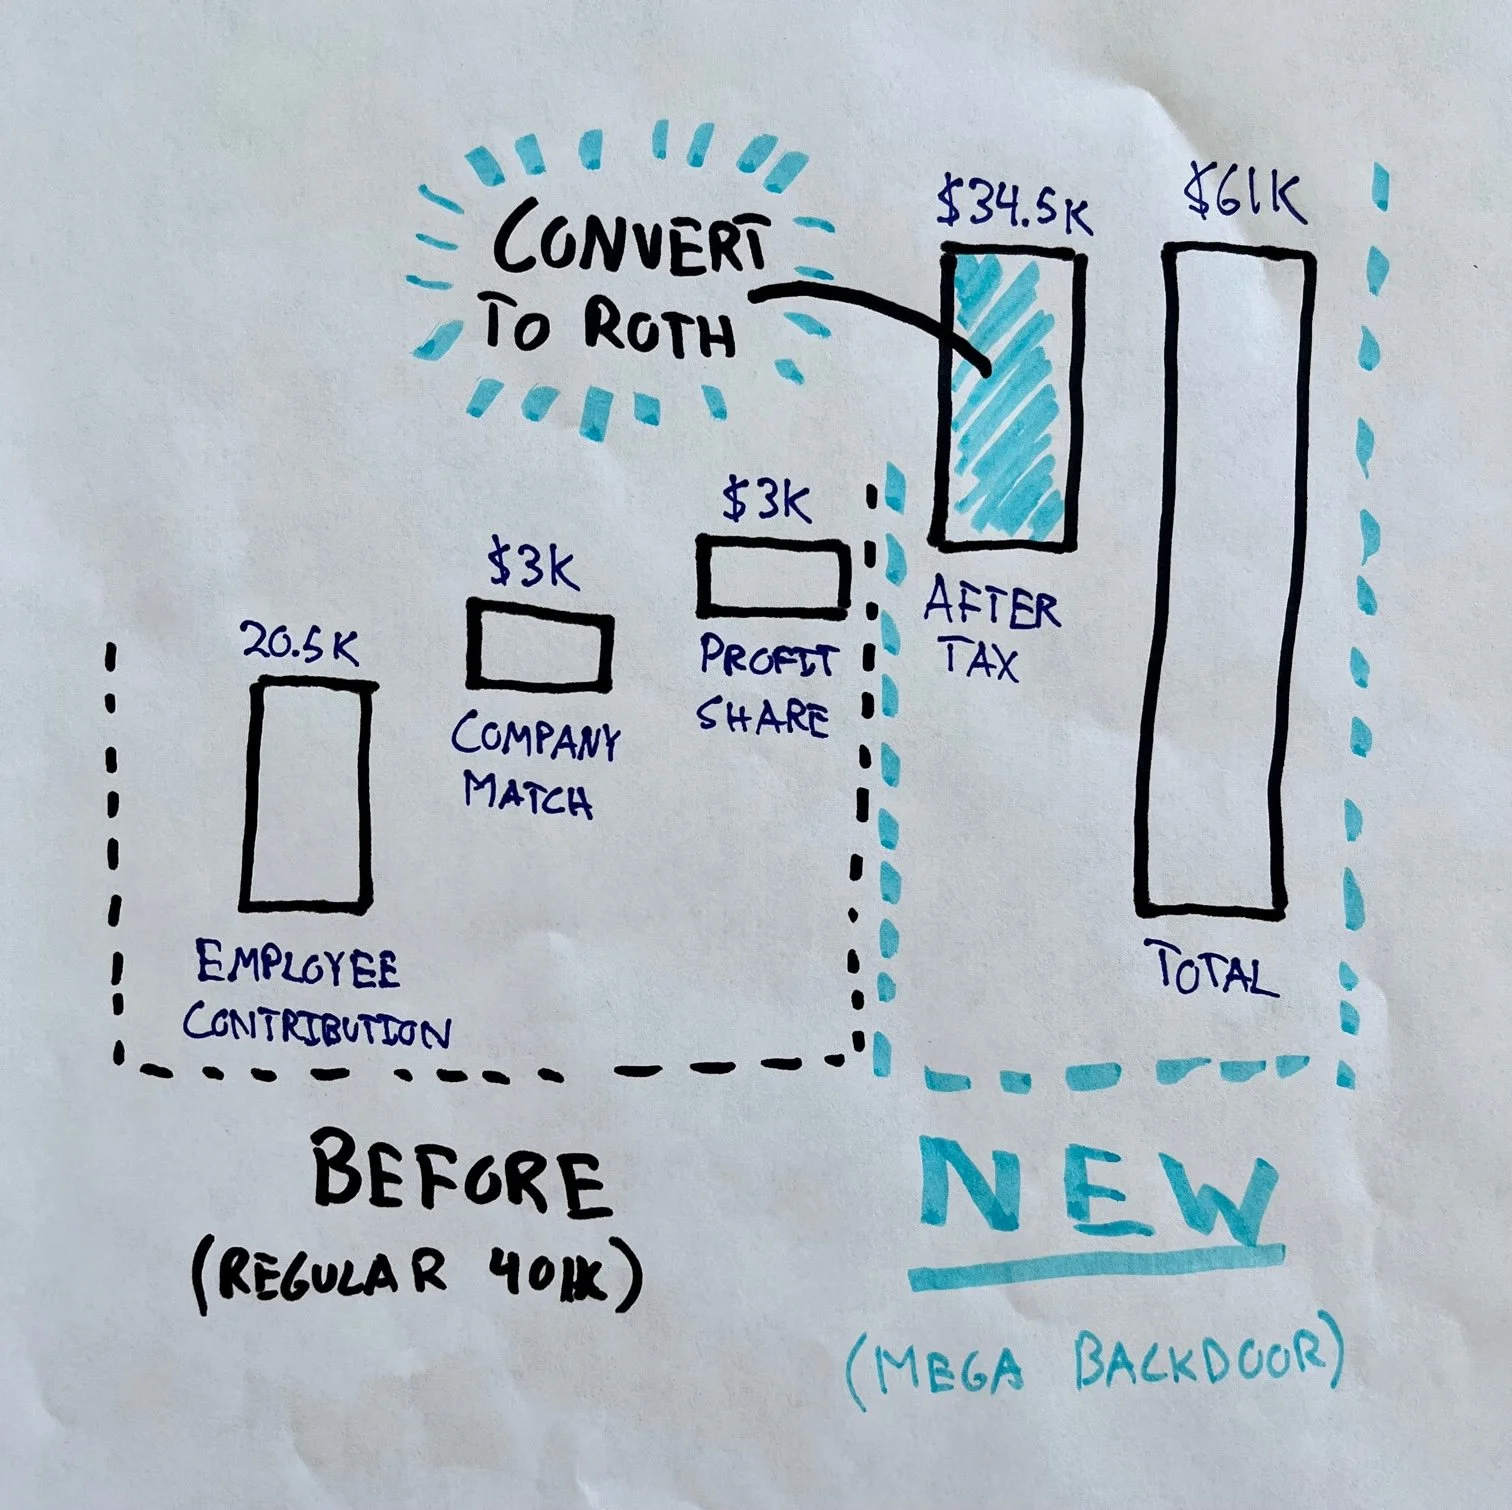 CONVERT
TO ROTH
$34.5K
$61K
$3K
$3K
20.5K
AFTER
TAX
PROFIT
SHARE
COMPANY
MATCH
EMPLOYEE
CONTRIBUTION
TOTAL
BEFORE
(REGULAR 401K)
NEW
(MEGA BACKDOOR)